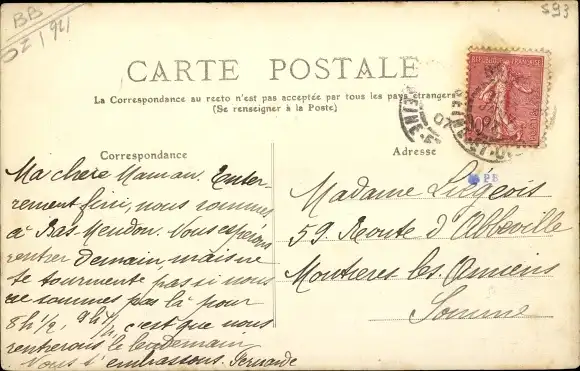 BB
OZ / 91
593
CARTE POSTALE
La Correspondance au recto n'est pas acceptée par tous les pays étrangers
(Se renseigner à la Poste)
REPUBLIQUE FRANÇAISE
10
07
SEINE
Correspondance
Adresse
PB
Ma chère Maman. Enter-
rement fini, nous sommes
à Bas-Meudon. Vous espérions
rentrer demain mais ne
te tourmente pas si nous
ne sommes pas là pour
8h 1/2, 9h 1/2, c'est que nous
rentrerons le lendemain
Vous t'embrassons. Fernande
Madame Liégeois
59. Route d'Abbeville
Montières les Amiens
Somme